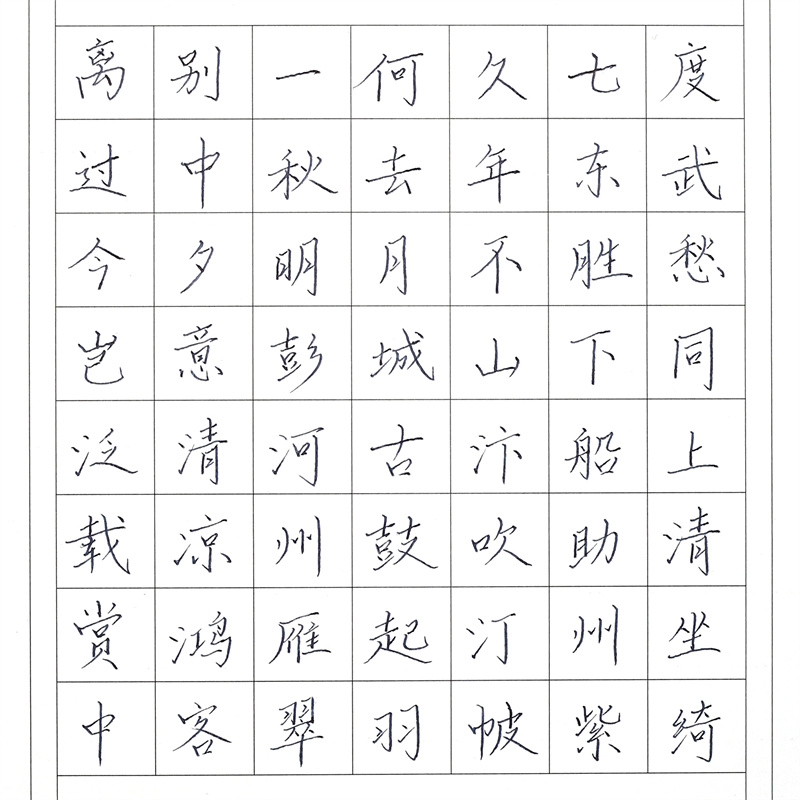 离别一何久七度
过中秋去年东武
今夕明月不胜愁
岂意彭城山下同
泛清河古汴船上
载凉州鼓吹助清
赏鸿雁起汀州坐
中客翠羽帔紫绮